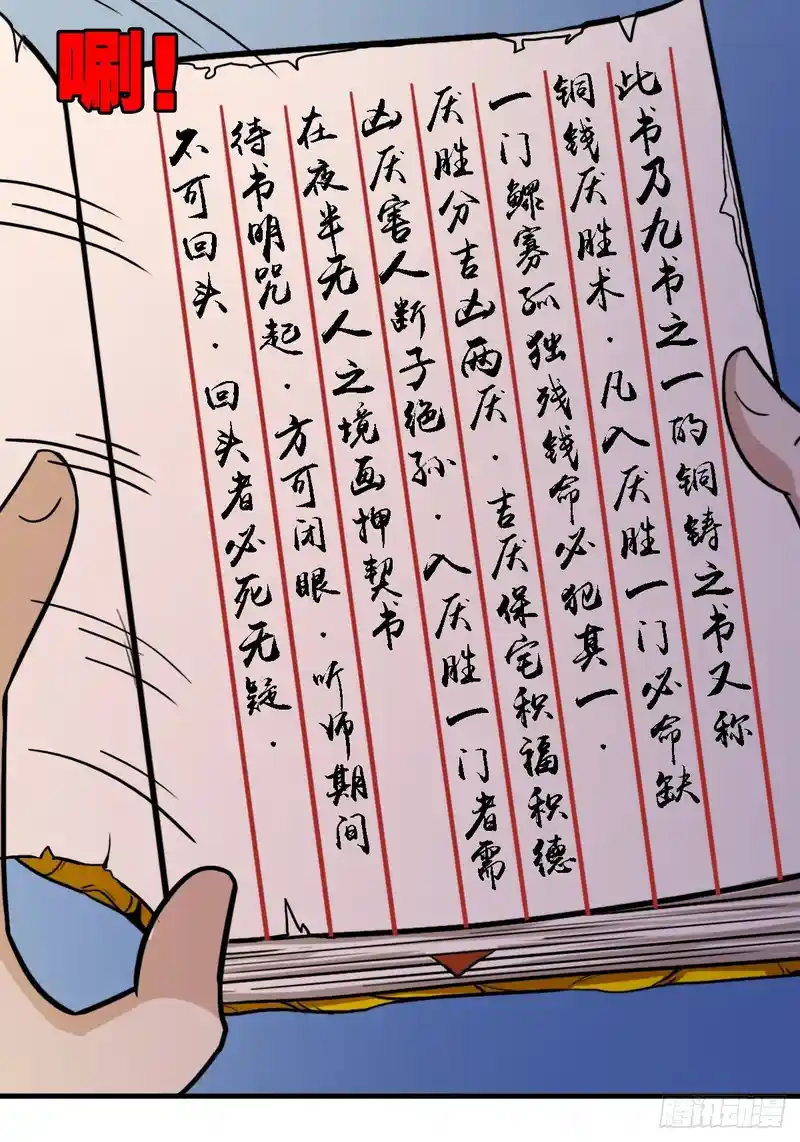 唰！
此书乃九书之一的铜铸之书又称
铜钱厌胜术．凡入厌胜一门必命缺
一门鳏寡孤独残钱命必犯其一．
厌胜分吉凶两厌．吉厌保宅积福积德
凶厌害人断子绝孙．入厌胜一门者需
在夜半无人之境画押契书
待书明咒起．方可闭眼．听师期间
不可回头．回头者必死无疑．
腾讯动漫